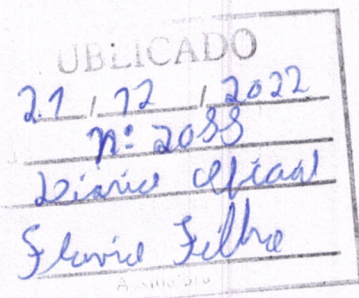 UBLICADO
21 / 12 / 2022
nº 2033
Diário Oficial
Flavio Filho
Assinatura